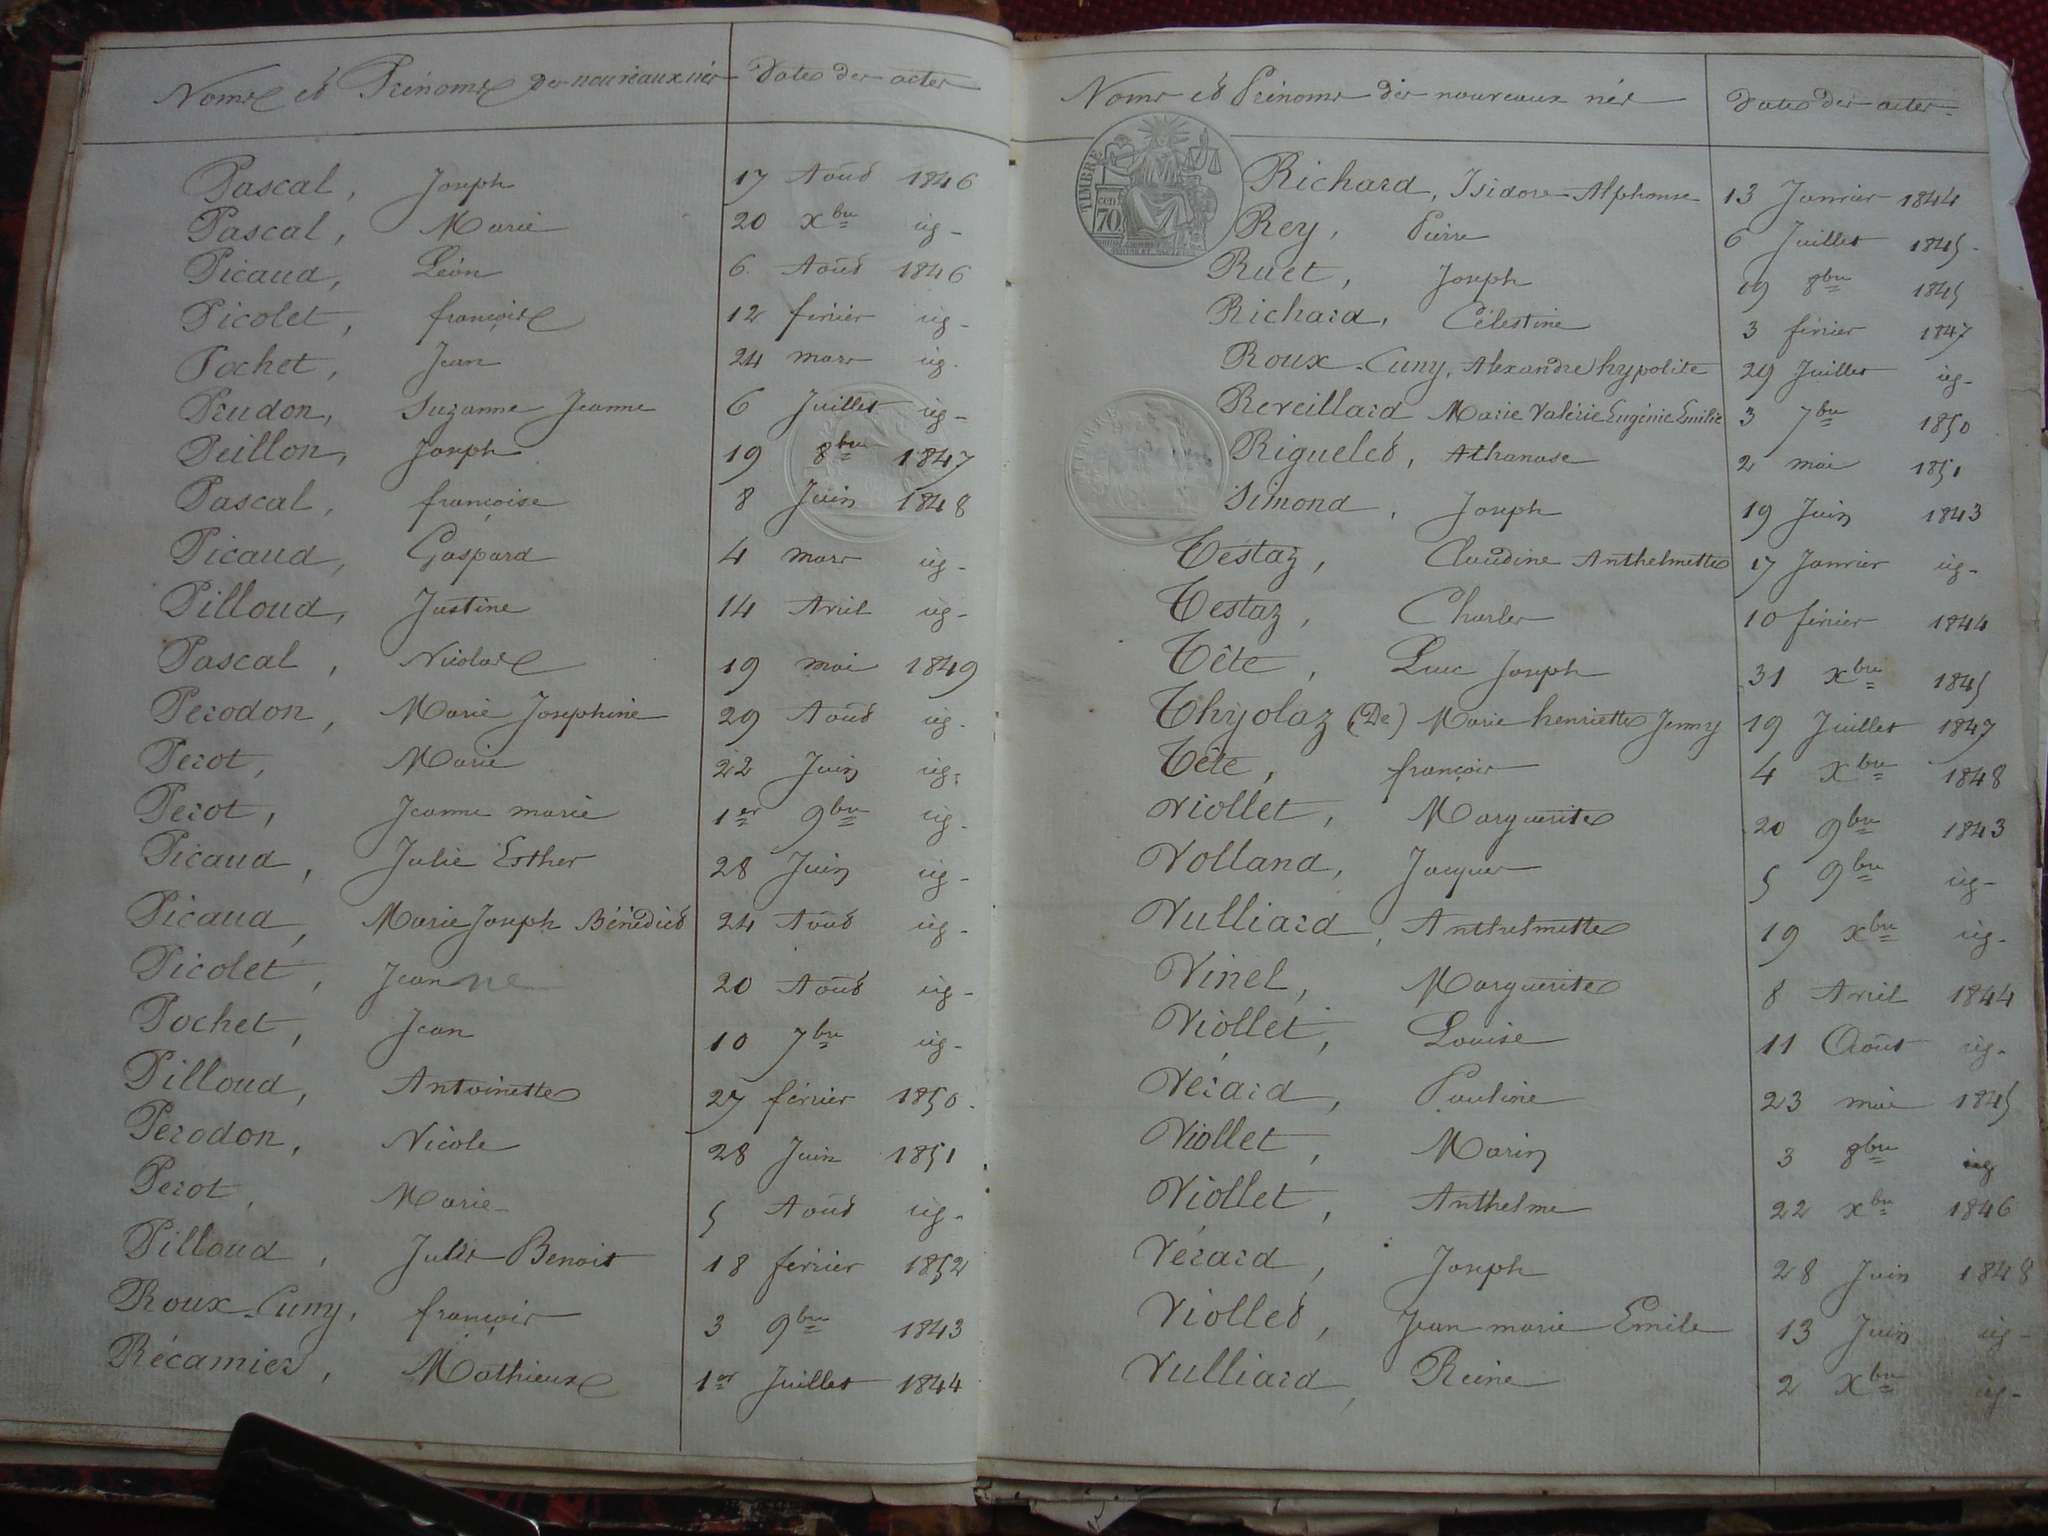 Noms et Prénoms des nouveaux nés Dates des actes
Pascal, Joseph 17 Août 1846
Pascal, Marie 20 Xbre ig-
Picaud, Léon 6 Août 1846
Picolet, françoise 12 février ig-
Pochet, Jean 24 mars ig-
Prudon, Suzanne Jeanne 6 Juillet ig-
Peillon, Joseph 19 8bre 1847
Pascal, françoise 8 Juin 1848
Picaud, Gaspard 4 mars ig-
Pilloud, Justine 14 Avril ig-
Pascal, Nicolas 19 mai 1849
Perodon, Marie Josephine 29 Août ig-
Perot, Marie 22 Juin ig-
Perot, Jeanne marie 1er 9bre ig-
Picaud, Julie Esther 28 Juin ig-
Picaud, Marie Joseph Bénédict 24 Août ig-
Picolet, Jeanne 20 Août ig-
Pochet, Jean 10 7bre ig-
Pilloud, Antoinette 27 février 1850-
Perodon, Nicole 28 Juin 1851
Perot, Marie 5 Août ig-
Pilloud, Jules Benoit 18 février 1852
Roux-Cuny, françois 3 9bre 1843
Récamier, Mathieux 1er Juillet 1844
Noms et Prénoms des nouveaux nés Dates des actes
TIMBRE
70
Richard, Isidore-Alphonse 13 Janvier 1844
Rey, Pierre 6 Juillet 1845-
Ruet, Joseph 19 8bre 1845
Richard, Célestine 3 février 1847
Roux-Cuny, Alexandre hypolite 29 Juillet ig-
Reveillard Marie Valérie Eugénie Emilie 3 7bre 1850
Riguelet, Athanase 2 mai 1851
Simond, Joseph 19 Juin 1843
Testaz, Claudine Anthelmette 17 Janvier ig-
Testaz, Charles 10 février 1844
Tête, Luc Joseph 31 Xbre 1845
Thyolaz (De) Marie henriette Jenny 19 Juillet 1847
Tête, françois 4 Xbre 1848
Viollet, Marguerite 20 9bre 1843
Volland, Jacques 5 9bre ig-
Vulliard, Anthelmette 19 Xbre ig-
Vinel, Marguerite 8 Avril 1844
Viollet, Louise 11 Août ig-
Verard, Pauline 23 mai 1845
Viollet, Marin 3 8bre ig
Viollet, Anthelme 22 Xbre 1846
Vérard, Joseph 28 Juin 1848
Viollet, Jean marie Emile 13 Juin ig-
Vulliard, Reine 2 Xbre ig-